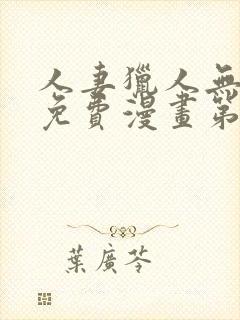 人妻獵人無
免費漫畫第
葉廣芩